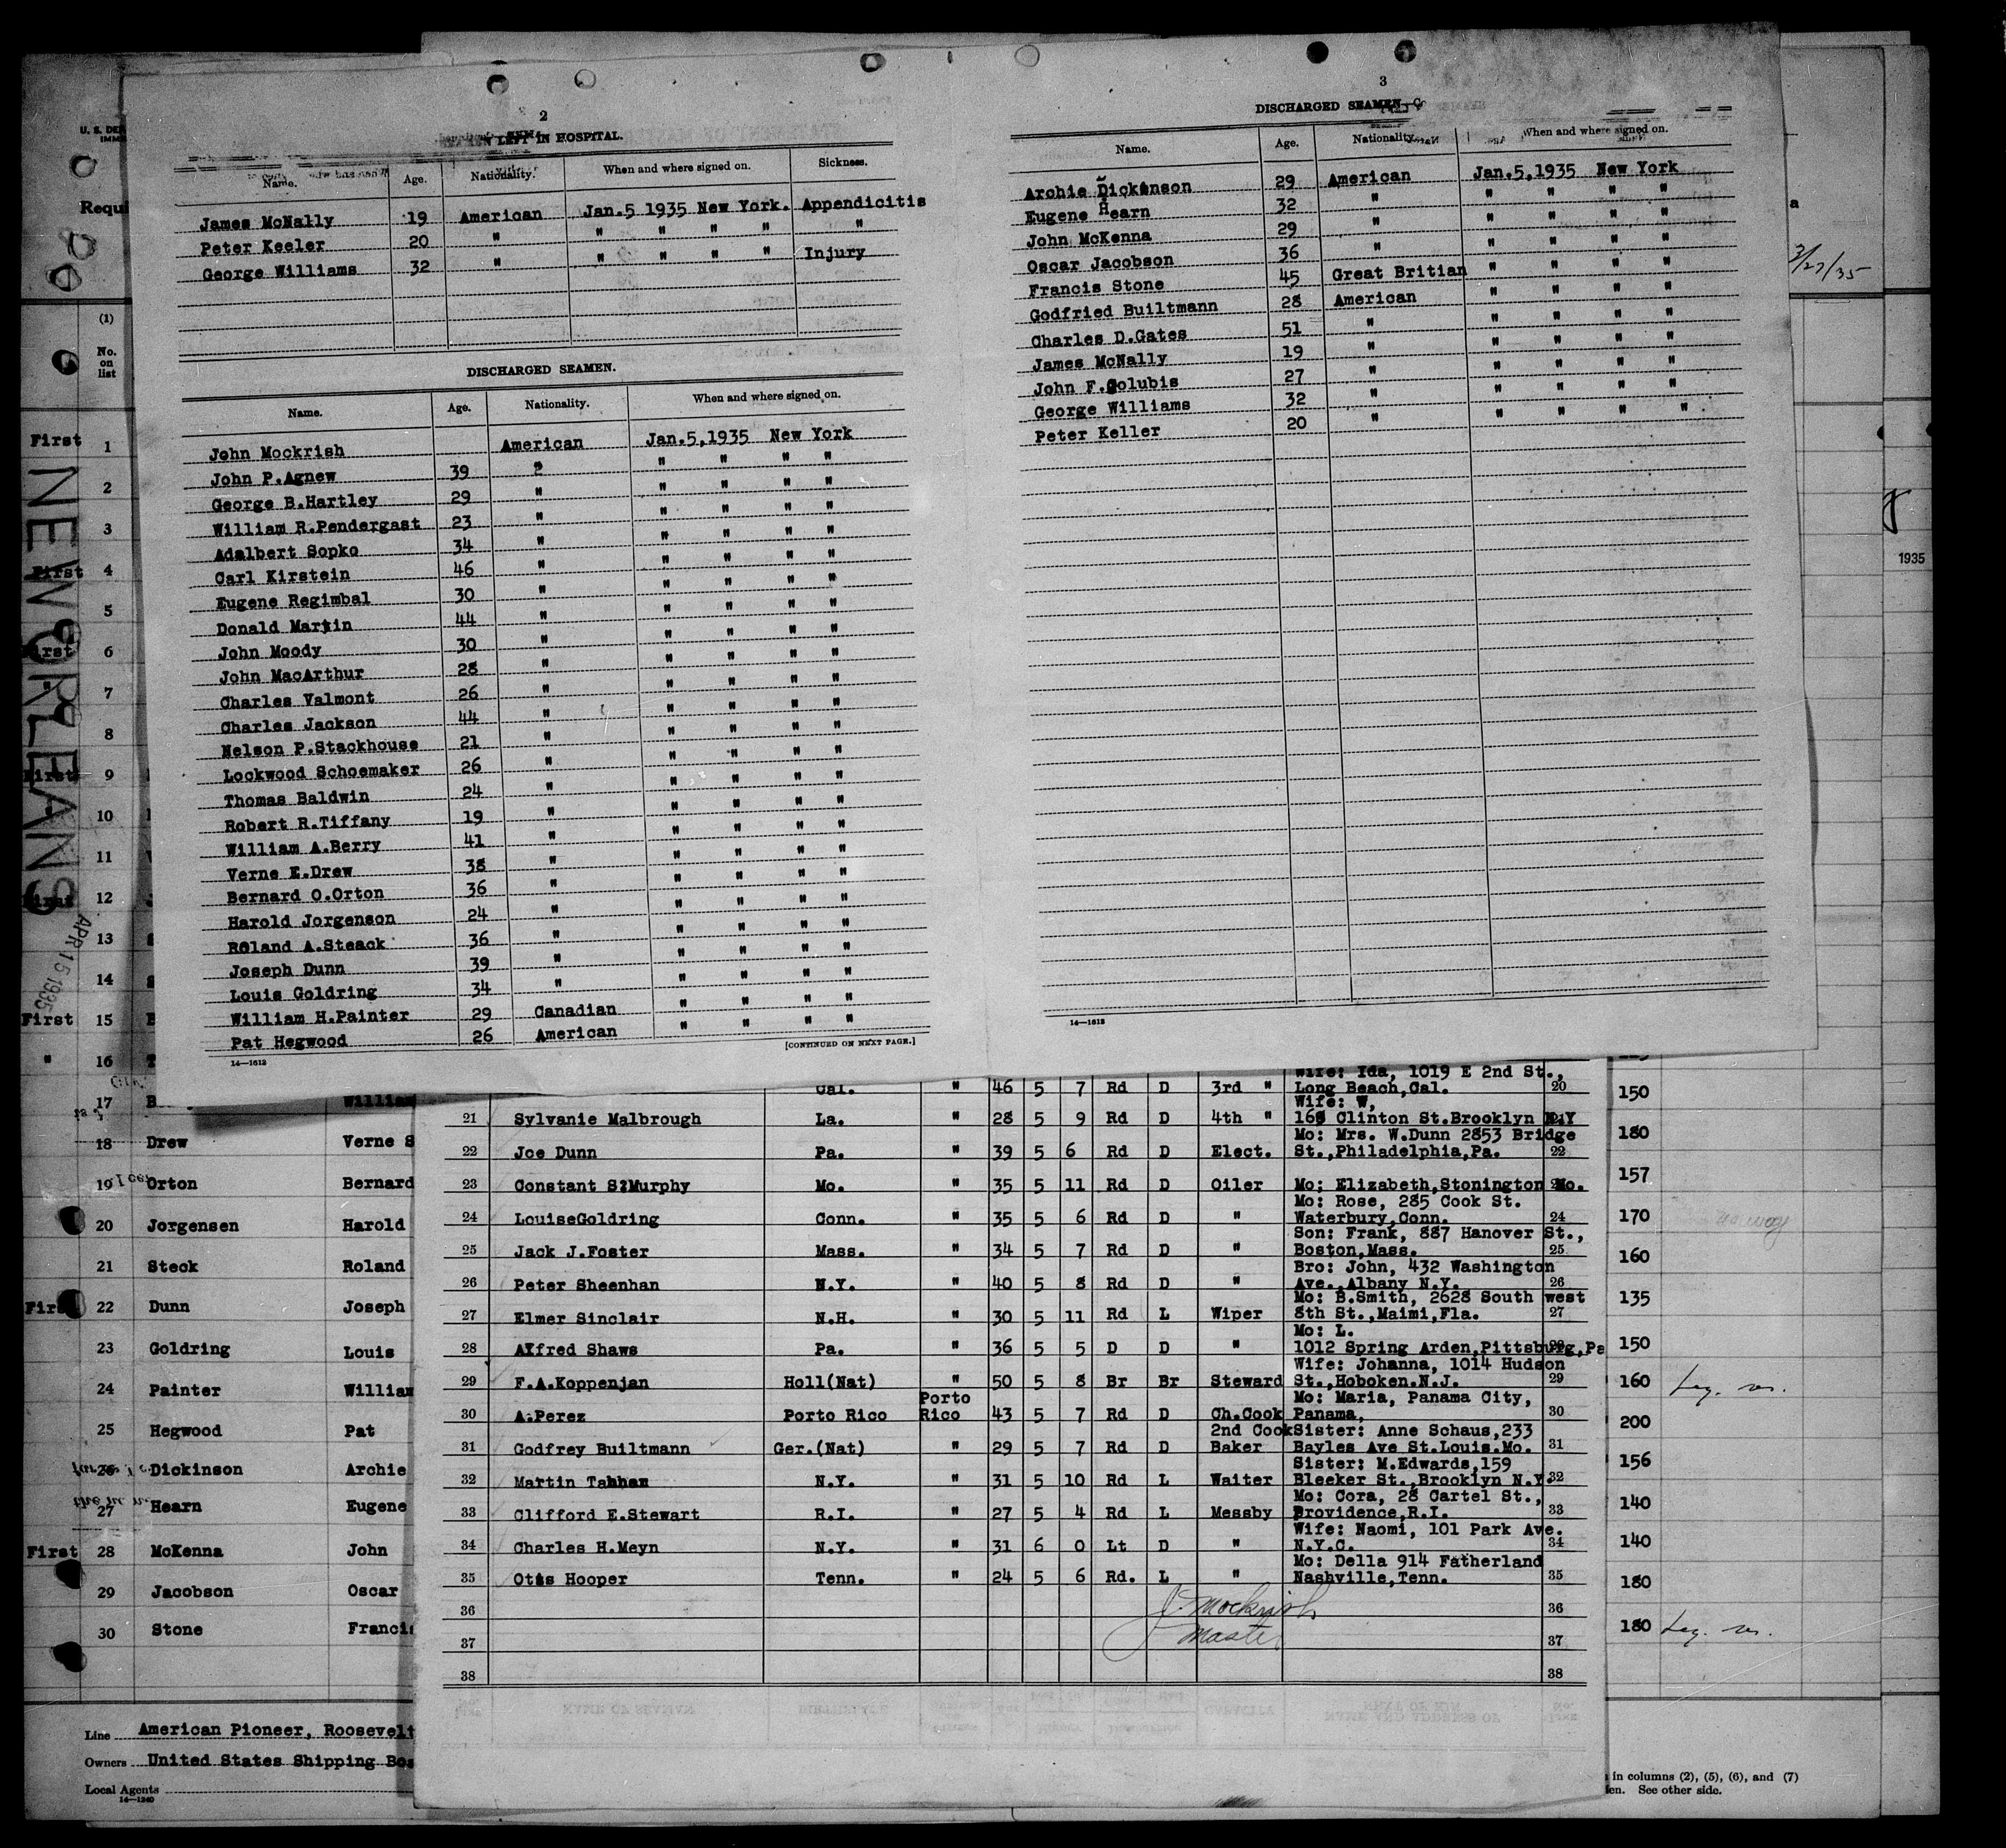 2
LEFT IN HOSPITAL.
Name. Age. Nationality. When and where signed on. Sickness.
James McNally 19 American Jan.5 1935 New York. Appendicitis
Peter Keeler 20 " " " " " "
George Williams 32 " " " " " Injury
DISCHARGED SEAMEN.
Name. Age. Nationality. When and where signed on.
John Mockrish American Jan.5,1935 New York
John P.Agnew 39 " " " " "
George B.Hartley 29 " " " " "
William R.Pendergast 23 " " " " "
Adalbert Sopko 34 " " " " "
Carl Kirstein 46 " " " " "
Eugene Regimbal 30 " " " " "
Donald Martin 44 " " " " "
John Moody 30 " " " " "
John MacArthur 28 " " " " "
Charles Valmont 26 " " " " "
Charles Jackson 44 " " " " "
Nelson P.Stackhouse 21 " " " " "
Lockwood Schoemaker 26 " " " " "
Thomas Baldwin 24 " " " " "
Robert R.Tiffany 19 " " " " "
William A.Berry 41 " " " " "
Verne E.Drew 38 " " " " "
Bernard O.Orton 36 " " " " "
Harold Jorgenson 24 " " " " "
Roland A.Steack 36 " " " " "
Joseph Dunn 39 " " " " "
Louis Goldring 34 " " " " "
William H.Painter 29 Canadian " " " "
Pat Hegwood 26 American " " " "
14—1612 [CONTINUED ON NEXT PAGE.]
3
DISCHARGED SEAMEN
Name. Age. Nationality. When and where signed on.
Archie Dickenson 29 American Jan.5,1935 New York
Eugene Hearn 32 " " " " "
John McKenna 29 " " " " "
Oscar Jacobson 36 " " " " "
Francis Stone 45 Great Britian " " " "
Godfried Builtmann 28 American " " " "
Charles D.Gates 51 " " " " "
James McNally 19 " " " " "
John F.Golubis 27 " " " " "
George Williams 32 " " " " "
Peter Keller 20 " " " " "
14—1612
U. S. DE
IMM
Requi
(1)
No.
on
list
First 1
2
3
First 4
5
First 6
7
8
First 9
10
11
First 12
13
14
First 15
" 16
17 William
18 Drew Verne S
19 Orton Bernard
20 Jorgensen Harold
21 Steck Roland
First 22 Dunn Joseph
23 Goldring Louis
24 Painter William
25 Hegwood Pat
26 Dickinson Archie
27 Hearn Eugene
First 28 McKenna John
29 Jacobson Oscar
30 Stone Francis
NEW ORLEANS
APR 15 1935
Line American Pioneer, Roosevelt
Owners United States Shipping Boa
Local Agents
14—1240
Wife: Ida, 1019 E 2nd St.,
Cal. " 46 5 7 Rd D 3rd " Long Beach,Cal. 20
Wife: W,
21 Sylvanie Malbrough La. " 28 5 9 Rd D 4th " 168 Clinton St.Brooklyn N.Y
Mo: Mrs. W.Dunn 2853 Bridge
22 Joe Dunn Pa. " 39 5 6 Rd D Elect. St.,Philadelphia,Pa. 22
23 Constant S.Murphy Mo. " 35 5 11 Rd D Oiler Mo: Elizabeth,Stonington Mo.
Mo: Rose, 285 Cook St.
24 LouiseGoldring Conn. " 35 5 6 Rd D " Waterbury,Conn. 24
Son: Frank, 887 Hanover St.,
25 Jack J.Foster Mass. " 34 5 7 Rd D " Boston,Mass. 25
Bro: John, 432 Washington
26 Peter Sheenhan N.Y. " 40 5 8 Rd D " Ave.,Albany N.Y. 26
Mo: B.Smith, 2628 South west
27 Elmer Sinclair N.H. " 30 5 11 Rd L Wiper 8th St.,Maimi,Fla. 27
Mo: L.
28 Alfred Shaws Pa. " 36 5 5 D D " 1012 Spring Arden,Pittsburg,Pa
Wife: Johanna, 1014 Hudson
29 F.A.Koppenjan Holl(Nat) " 50 5 8 Br Br Steward St.,Hoboken.N.J. 29
Porto Mo: Maria, Panama City,
30 A.Perez Porto Rico Rico 43 5 7 Rd D Ch.Cook Panama, 30
2nd Cook Sister: Anne Schaus,233
31 Godfrey Builtmann Ger.(Nat) " 29 5 7 Rd D Baker Bayles Ave St.Louis.Mo. 31
Sister: M.Edwards,159
32 Martin Tahhan N.Y. " 31 5 10 Rd L Waiter Bleeker St.,Brooklyn N.Y. 32
Mo: Cora, 28 Cartel St.,
33 Clifford E.Stewart R.I. " 27 5 4 Rd L Messby Providence,R.I. 33
Wife: Naomi, 101 Park Ave.
34 Charles H.Meyn N.Y. " 31 6 0 Lt D " N.Y.C. 34
Mo: Della 914 Fatherland
35 Otis Hooper Tenn. " 24 5 6 Rd. L " Nashville,Tenn. 35
36 J. Mockrish 36
37 Master 37
38 38
a
3/27/35
1935
150
180
157
170
160
135
150
160
200
156
140
140
180
180
in columns (2), (5), (6), and (7)
See other side.